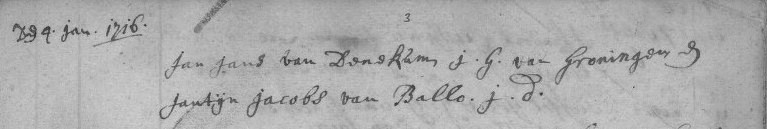 3
Dd 4. jan. 1716.
Jan Jans van Denekum j. G. van Groningen &
Jantyn Jacobs van Ballo. j. d.